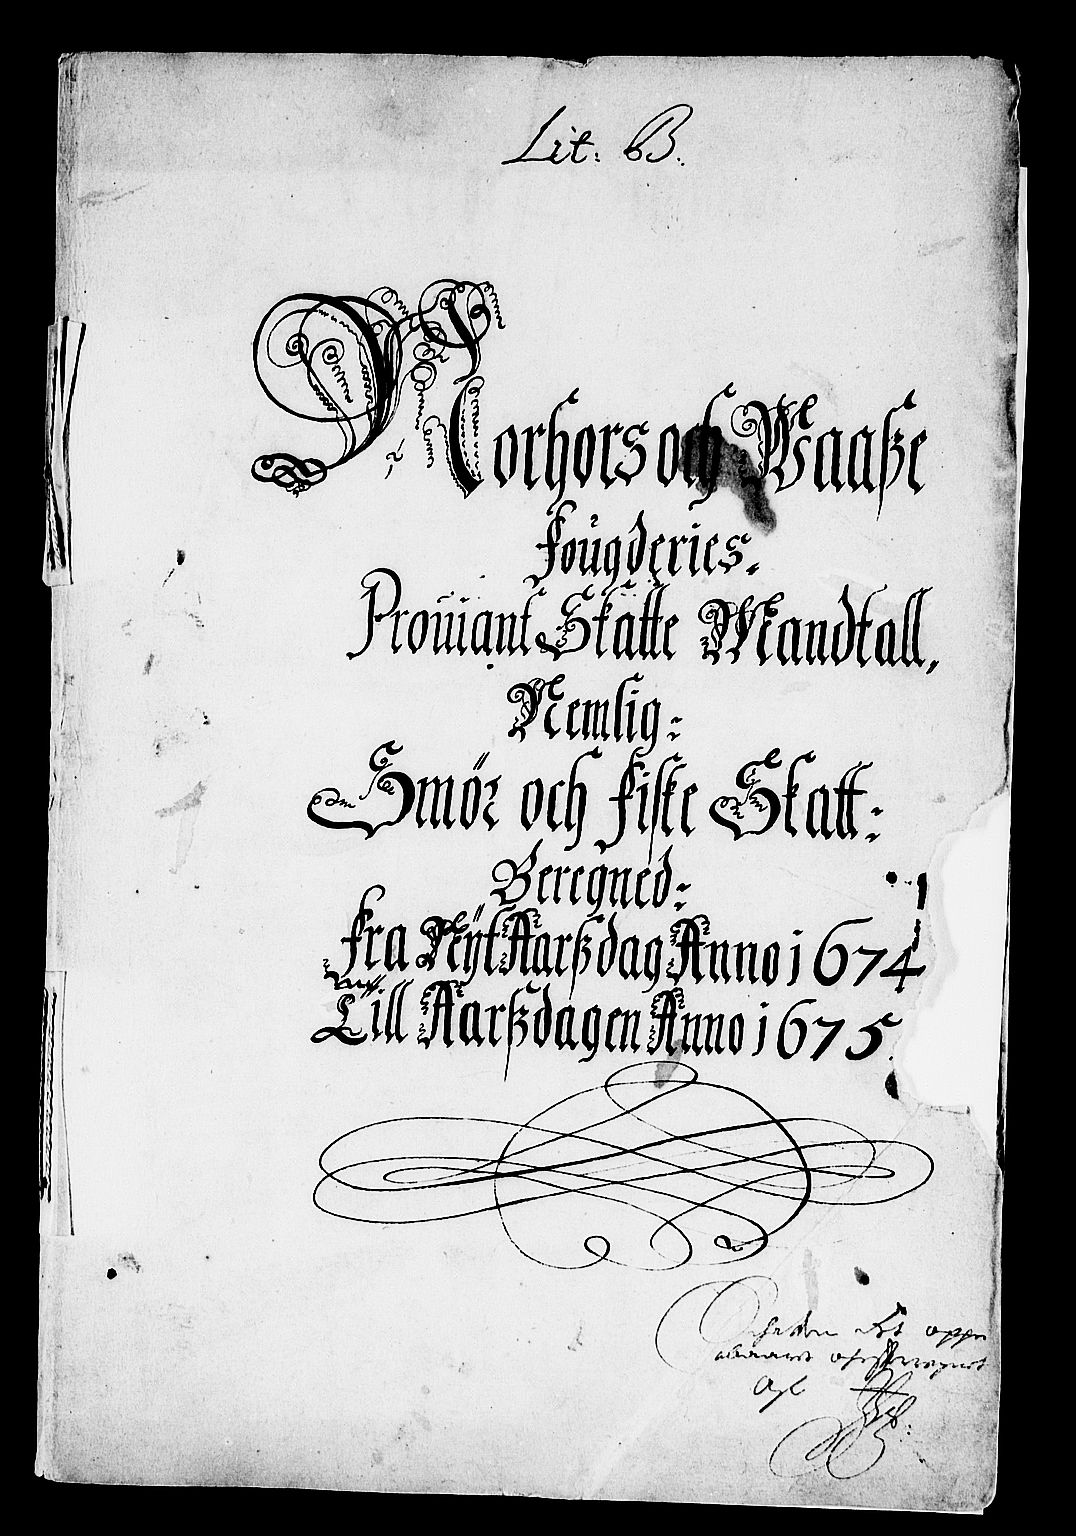 Lit: B.
Norhors och Waaße
fougderies.
Prouiant Skatte Mandtall,
Nemlig:
Smör och fiske Skatt:
Beregned:
fra Nÿt Aarßdag Anno 1674
Till Aarßdagen Anno 1675